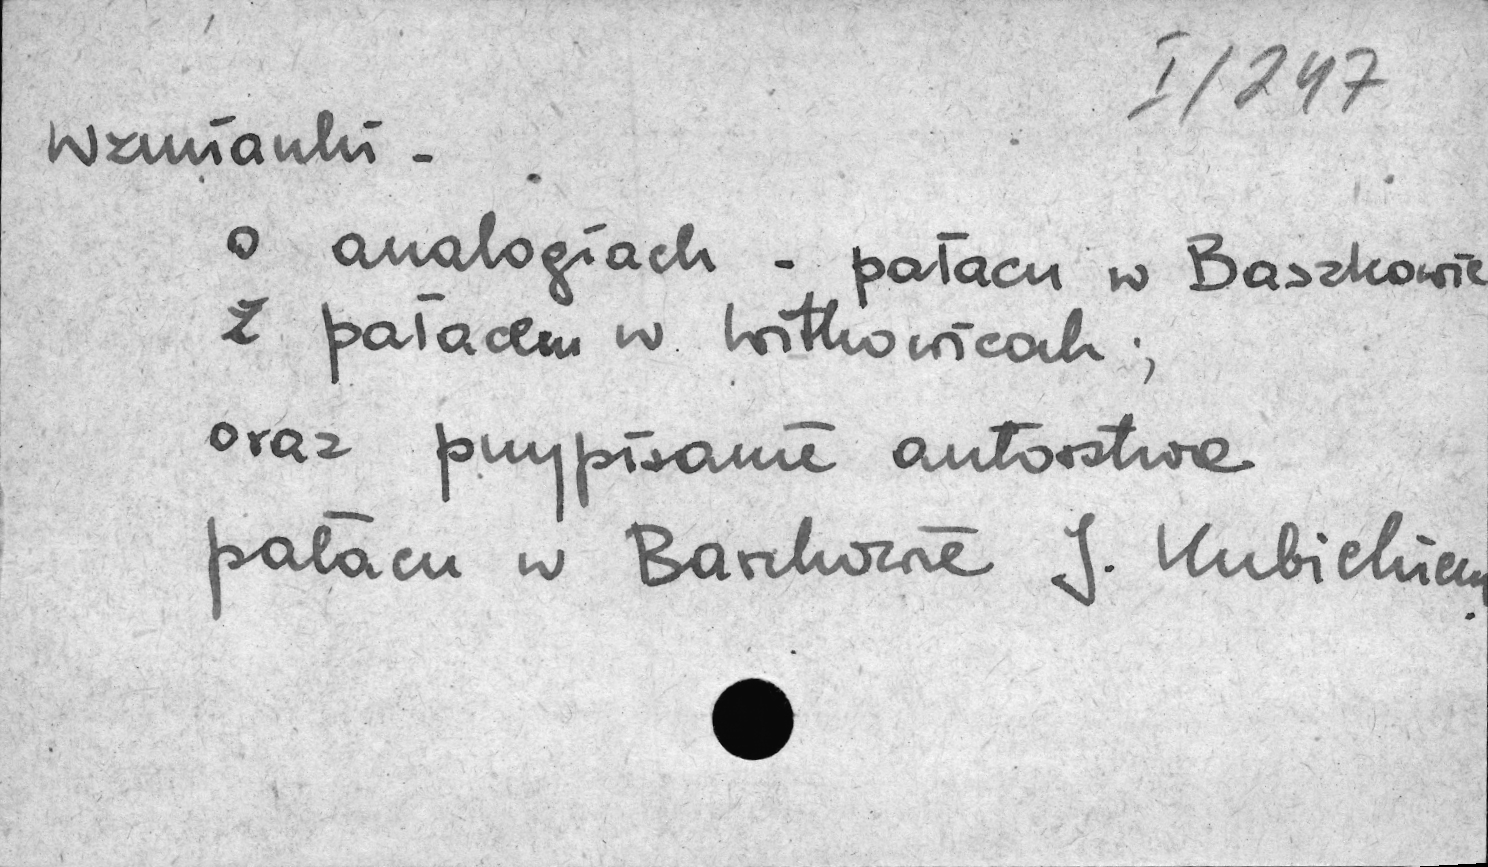 I/247
Wzmianki -
o analogiach - pałacu w Baszkowie
z pałacem w Witkowicach;
oraz przypisanie autorstwa
pałacu w Baszkowie J. Kubickiemu